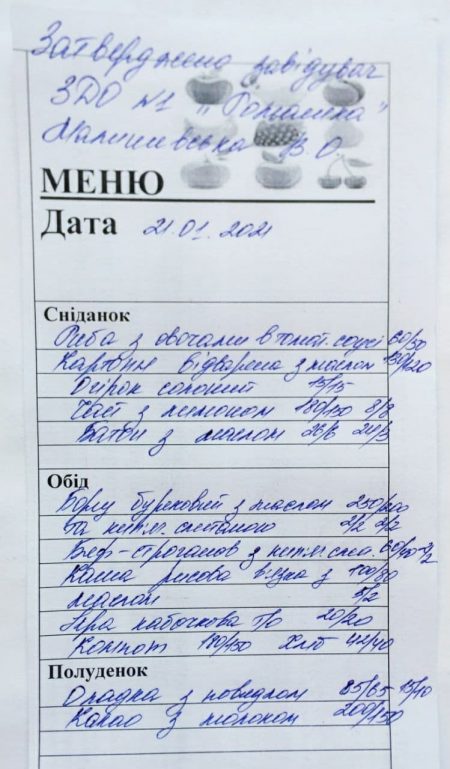 Затверджено завідувач
ЗДО №1 "Ромашка"
Малишевська В.О.
МЕНЮ
Дата 21.01.2021
Сніданок
Риба з овочами в томат. соусі 60/50
Картопля відварена з маслом 130/120
Огірок солоний 15/15
Чай з лимоном 180/150 8/8
Батон з маслом 26/6 24/3
Обід
Борщ буряковий з маслом 250/200
та кип'яч. сметаною 2/2 2/2
Беф-строганов з кип'яч. сме. 60/40
Каша рисова в'язка з 100/80
маслом 3/2
Ікра кабачкова п/о 20/20
Компот 180/150 Хліб 42/40
Полуденок
Оладка з повидлом 85/65 15/10
Какао з молоком 200/150